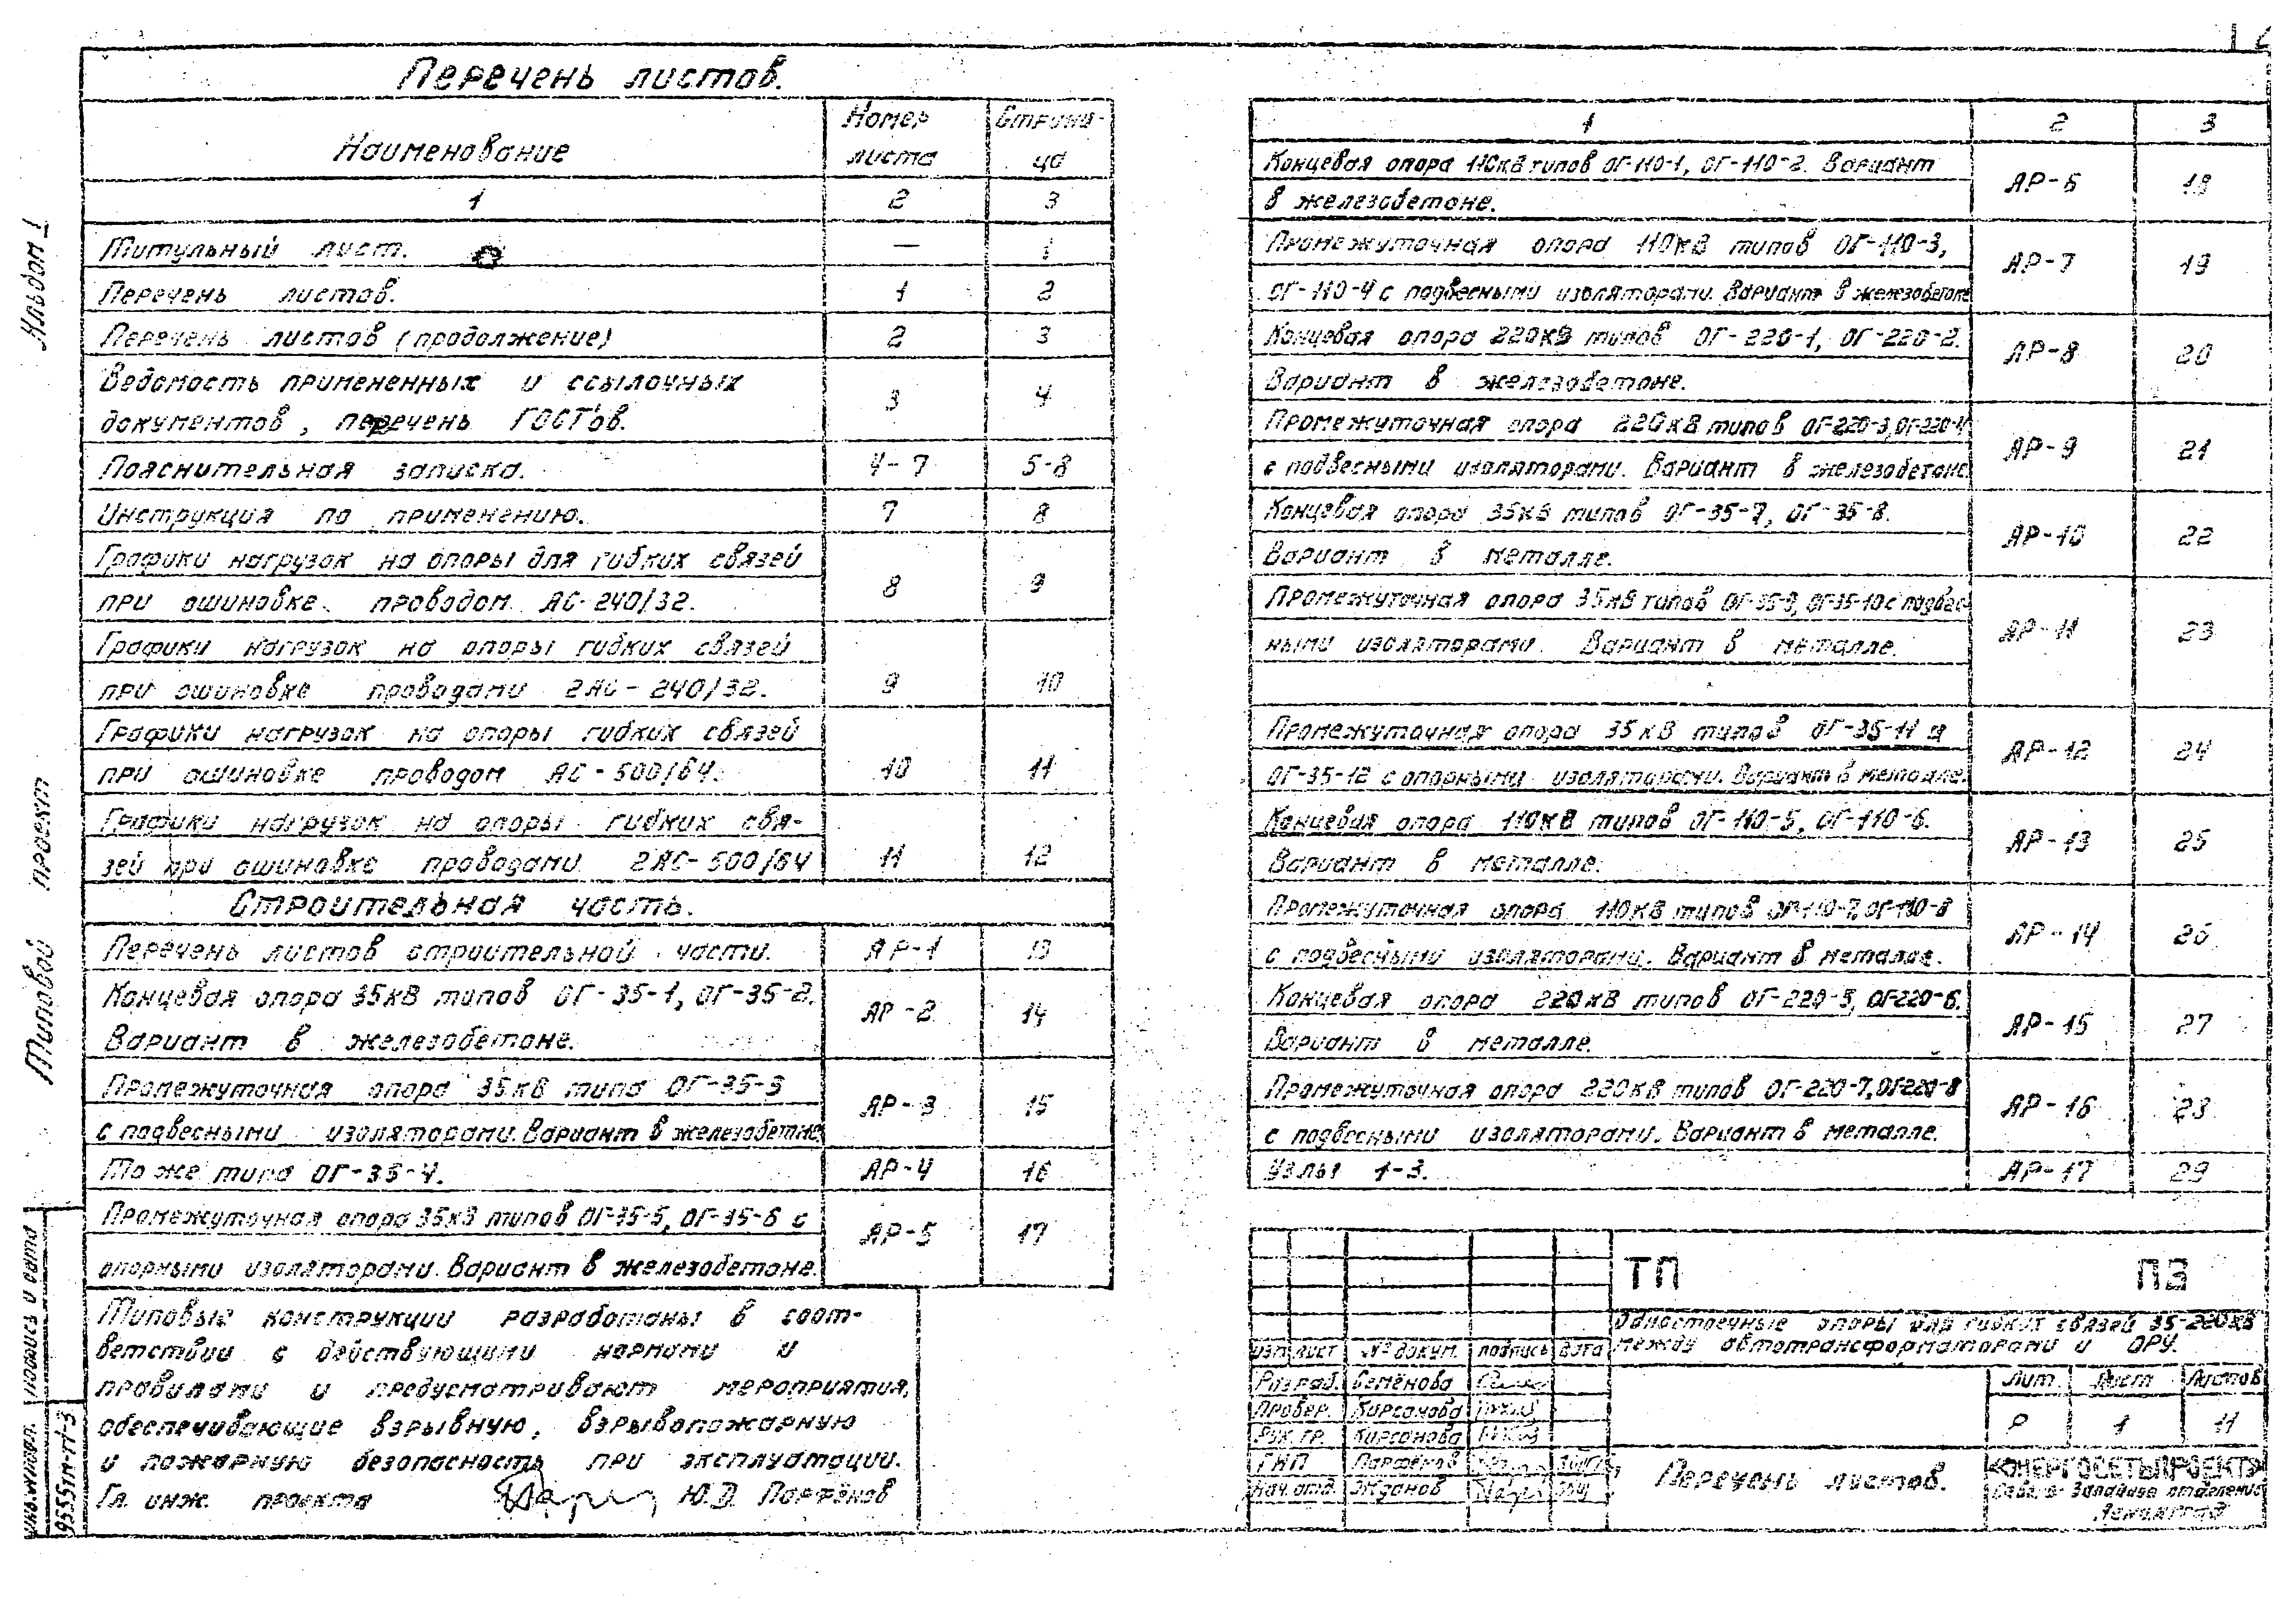 Перечень листов.
Наименование
Номер листа
Страница
1 2 3
Титульный лист. — 1
Перечень листов. 1 2
Перечень листов (продолжение) 2 3
Ведомость примененных и ссылочных
документов, перечень ГОСТ'ов. 3 4
Пояснительная записка. 4-7 5-8
Инструкция по применению. 7 8
Графики нагрузок на опоры для гибких связей
при ошиновке проводом АС-240/32. 8 9
Графики нагрузок на опоры гибких связей
при ошиновке проводами 2АС-240/32. 9 10
Графики нагрузок на опоры гибких связей
при ошиновке проводом АС-500/64. 10 11
Графики нагрузок на опоры гибких свя-
зей при ошиновке проводами 2АС-500/64 11 12
Строительная часть.
Перечень листов строительной части. АР-1 13
Концевая опора 35кВ типов ОГ-35-1, ОГ-35-2.
Вариант в железобетоне. АР-2 14
Промежуточная опора 35кВ типа ОГ-35-3
с подвесными изоляторами. Вариант в железобетоне АР-3 15
То же типа ОГ-35-4. АР-4 16
Промежуточная опора 35кВ типов ОГ-35-5, ОГ-35-6 с
опорными изоляторами. Вариант в железобетоне. АР-5 17
Типовые конструкции разработаны в соот-
ветствии с действующими нормами и
правилами и предусматривают мероприятия,
обеспечивающие взрывную, взрывопожарную
и пожарную безопасность при эксплуатации.
Гл. инж. проекта Ю.Д. Парфёнов
1 2 3
Концевая опора 110кВ типов ОГ-110-1, ОГ-110-2. Вариант
в железобетоне. АР-6 18
Промежуточная опора 110кВ типов ОГ-110-3,
ОГ-110-4 с подвесными изоляторами. Вариант в железобетоне АР-7 19
Концевая опора 220кВ типов ОГ-220-1, ОГ-220-2.
Вариант в железобетоне. АР-8 20
Промежуточная опора 220кВ типов ОГ-220-3, ОГ-220-4
с подвесными изоляторами. Вариант в железобетоне АР-9 21
Концевая опора 35кВ типов ОГ-35-7, ОГ-35-8.
Вариант в металле. АР-10 22
Промежуточная опора 35кВ типов ОГ-35-9, ОГ-35-10 с подвес-
ными изоляторами. Вариант в металле. АР-11 23
Промежуточная опора 35кВ типов ОГ-35-11 и
ОГ-35-12 с опорными изоляторами. Вариант в металле. АР-12 24
Концевая опора 110кВ типов ОГ-110-5, ОГ-110-6.
Вариант в металле. АР-13 25
Промежуточная опора 110кВ типов ОГ-110-7, ОГ-110-8
с подвесными изоляторами. Вариант в металле. АР-14 26
Концевая опора 220кВ типов ОГ-220-5, ОГ-220-6.
Вариант в металле. АР-15 27
Промежуточная опора 220кВ типов ОГ-220-7, ОГ-220-8
с подвесными изоляторами. Вариант в металле. АР-16 28
Узлы 1-3. АР-17 29
ТП ПЗ
Одностоечные опоры для гибких связей 35-220кВ
между автотрансформаторами и ОРУ.
Изм. лист № докум. подпись дата
Разраб. Семёнова
Провер. Кирсанова
Рук. гр. Кирсанова
ГИП Парфенов
Нач. отд. Жданов
Лит. Лист Листов
Р 1 11
Перечень листов.
«ЭНЕРГОСЕТЬПРОЕКТ»
Северо-Западное отделение
Ленинград
Альбом I
Типовой проект
Инв. № подл. подпись и дата
9555тм-т1-3